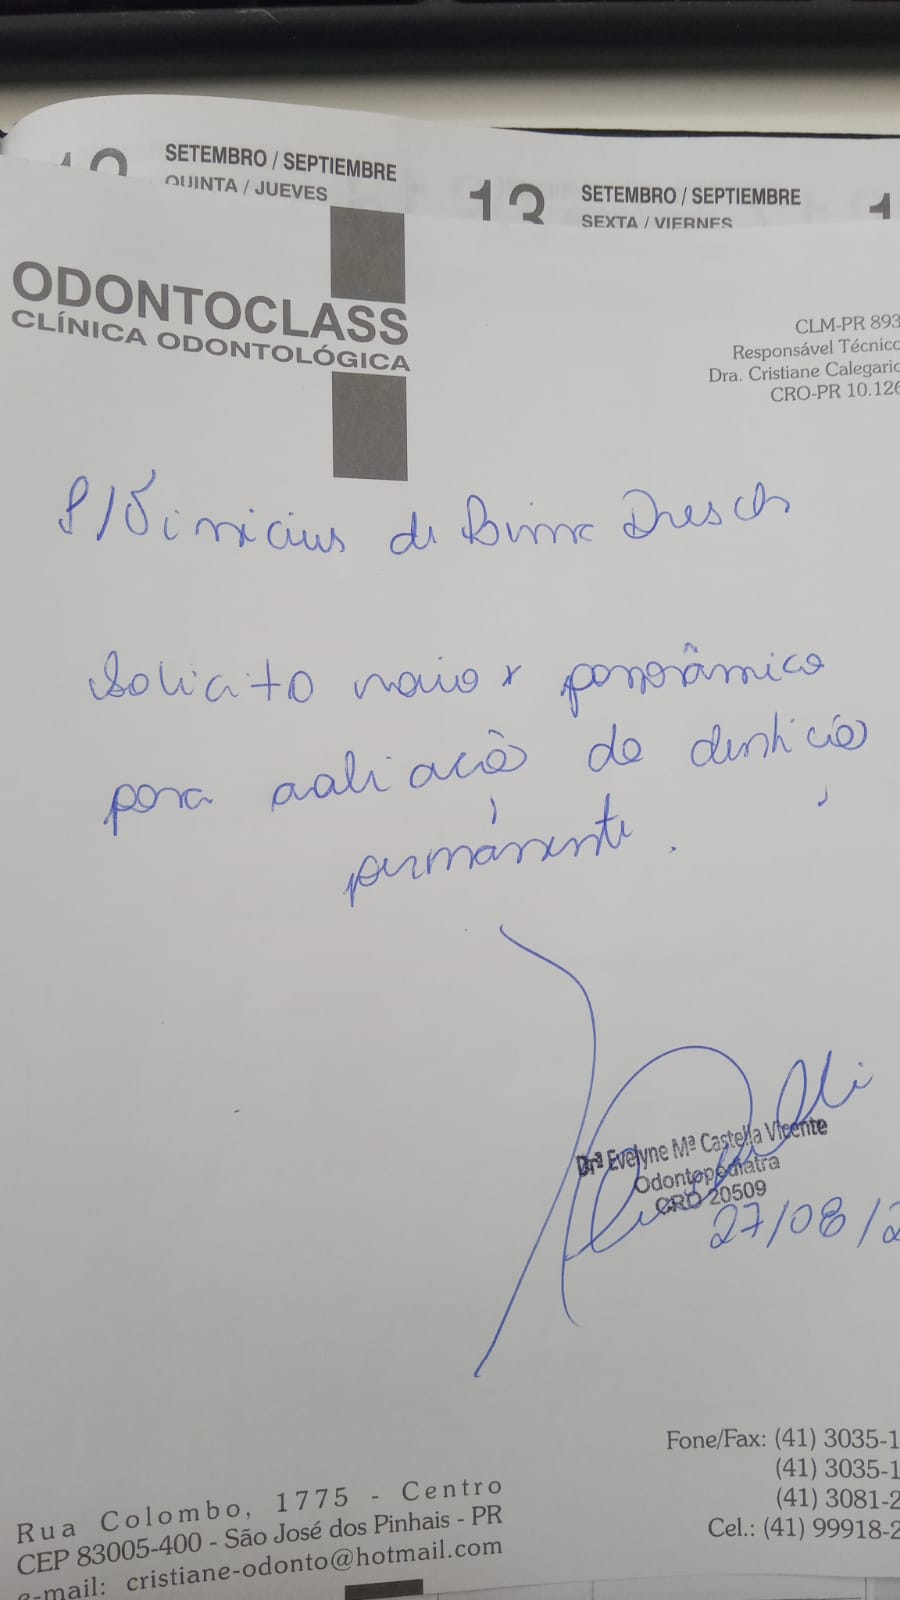 SETEMBRO / SEPTIEMBRE
QUINTA / JUEVES
13 SETEMBRO / SEPTIEMBRE
SEXTA / VIERNES
ODONTOCLASS
CLÍNICA ODONTOLÓGICA
CLM-PR 893
Responsável Técnico
Dra. Cristiane Calegario
CRO-PR 10.126
P/ Vinicius de Dresch
Solicito raio x panorâmico
para avaliação da dentição
permanente.
Drª Evelyne Mª Castella Vicente
Odontopediatra
CRO 20509
27/08/2
Fone/Fax: (41) 3035-1
(41) 3035-1
(41) 3081-2
Cel.: (41) 99918-2
Rua Colombo, 1775 - Centro
CEP 83005-400 - São José dos Pinhais - PR
e-mail: cristiane-odonto@hotmail.com